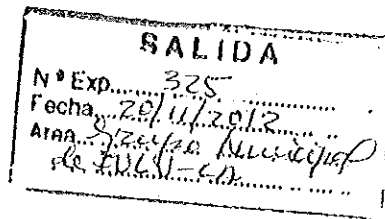 SALIDA
Nº Exp. 325
Fecha 20/11/2012
Area Municipal
de